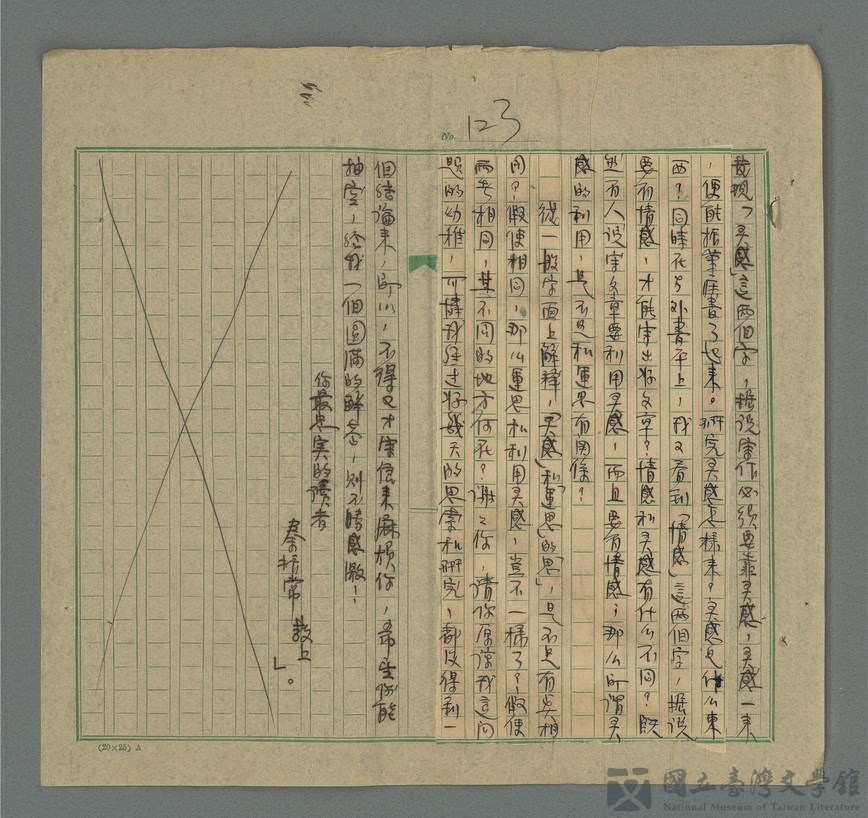 No. 123
發現「灵感」這两個字,據說寫作必須要靠灵感,灵感一来
,便能振筆疾書了起来。研究灵感怎樣来?灵感是什么東
西?同時在另外書平上,我又看到「情感」這两個字,據說
要有情感,才能寫出好文章?情感和灵感有什么不同?既
然有人說寫文章要利用灵感,而且要有情感,那么所謂灵
感的利用,是不是和運思有関係?
從一般字面上解釋,「灵感」和「運思」的「思」,是不是有些相
同?假使相同,那么運思和利用灵感,豈不一樣了?假使
两者相同,某不同的地方何在?謝々你,請你原諒我這问
题的幼稚,可憐我经过好幾天的思索和研究,都没得到一
個结論来,所以,不得已才寫信来麻煩你,希望你能
抽空,给我一個圓滿的解答,則不勝感激!
你最忠实的讀者
秦振常 敬上
」。
(20×25) A
國立臺灣文學館
National Museum of Taiwan Literature